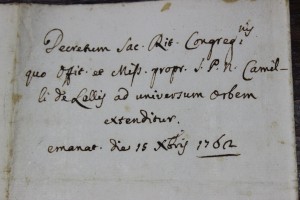 Decretum Sac. Rit. Congreg.nis
quo Offit. et Miss. propr. S. P. N. Camil-
li de Lellis ad universum Orbem
extenditur.
emanat. die 15 Xbris 1762